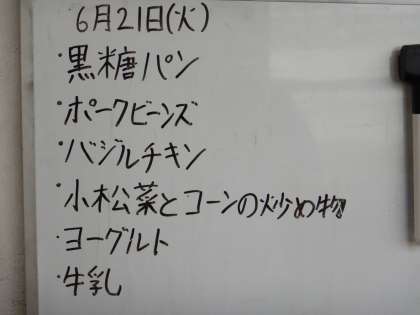 6月21日(火)
・黒糖パン
・ポークビーンズ
・バジルチキン
・小松菜とコーンの炒め物
・ヨーグルト
・牛乳